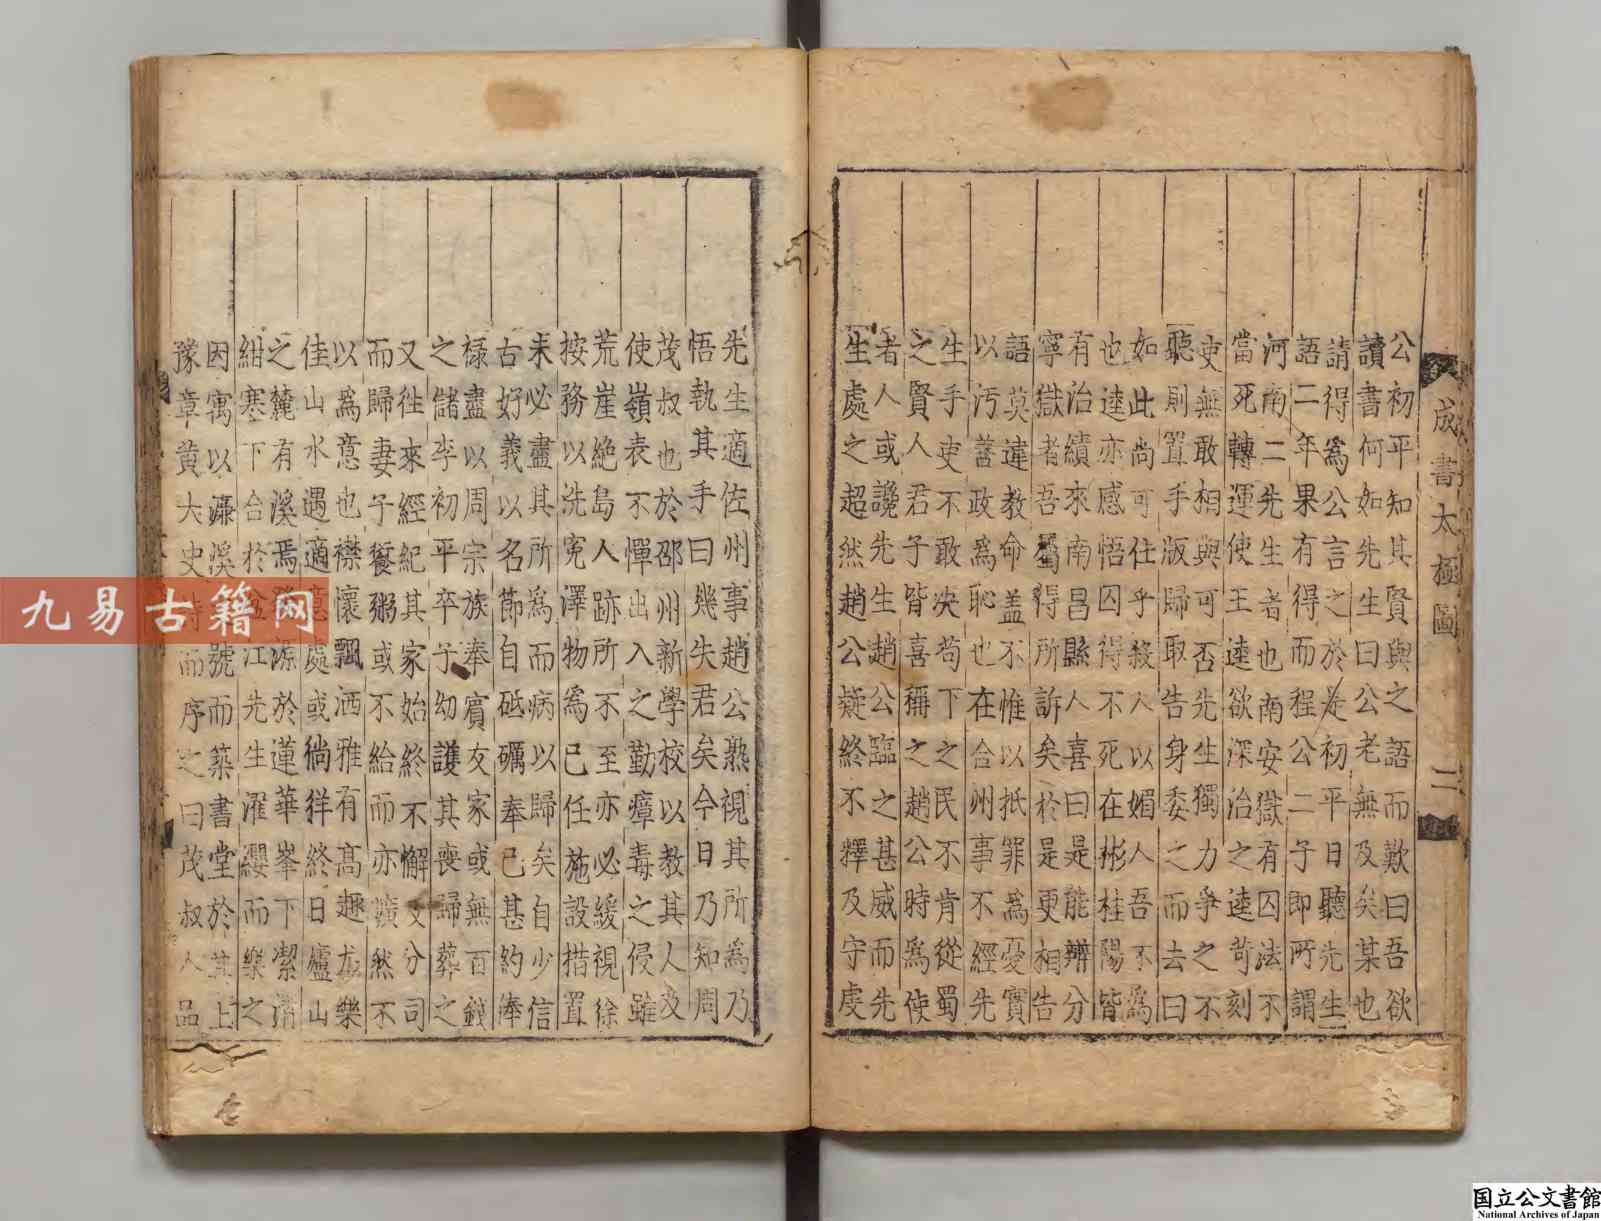 成書太極圖 二
公初平知其賢與之語而歎曰吾欲
讀書何如先生曰公老無及矣某也
請得爲公言之於是初平日聽先生
語二年果有得而程公二子即所謂
河南二先生者也南安獄有囚法不
當死轉運使王逵欲深治之逵苛刻
吏無敢相與可否先生獨力爭之不
聽則置手版歸取告身委之而去曰
如此尚可仕乎殺人以媚人吾不爲
也逵亦感悟囚得不死在彬桂陽皆
有治績來南昌縣人喜曰是能辨分
寧獄者吾屬得所訴矣於是更相告
語莫違教命盖不惟以抵罪爲憂實
以汚善政爲恥也在合州事不經先
生手吏不敢决苟下之民不肯從蜀
之賢人君子皆喜稱之趙公時爲使
者人或讒先生趙公臨之甚威而先
生處之超然趙公疑終不釋及守虔
先生適佐州事趙公熟視其所爲乃
悟執其手曰幾失君矣今日乃知周
茂叔也於邵州新學校以教其人及
使嶺表不憚出入之勤瘴毒之侵雖
荒崖絶島人跡所不至亦必緩視徐
按務以洗寃澤物爲己任施設措置
未必盡其所爲而病以歸矣自少信
古好義以名節自砥礪奉己甚約俸
祿盡以周宗族奉賓友家或無百錢
之儲李初平卒子幼護其喪歸葬之
又徃來經紀其家始終不懈及分司
而歸妻子饘粥或不給而亦曠然不
以爲意也襟懷飄洒雅有高趣尤樂
佳山水遇適意處或徜徉終日廬山
之麓有溪焉源於蓮華峯下潔清
紺寒下合於湓江先生濯纓而樂之
因寓以濂溪號而築書堂於其上
豫章黄大史詩而序之曰茂叔人品
九易古籍网
国立公文書館
National Archives of Japan